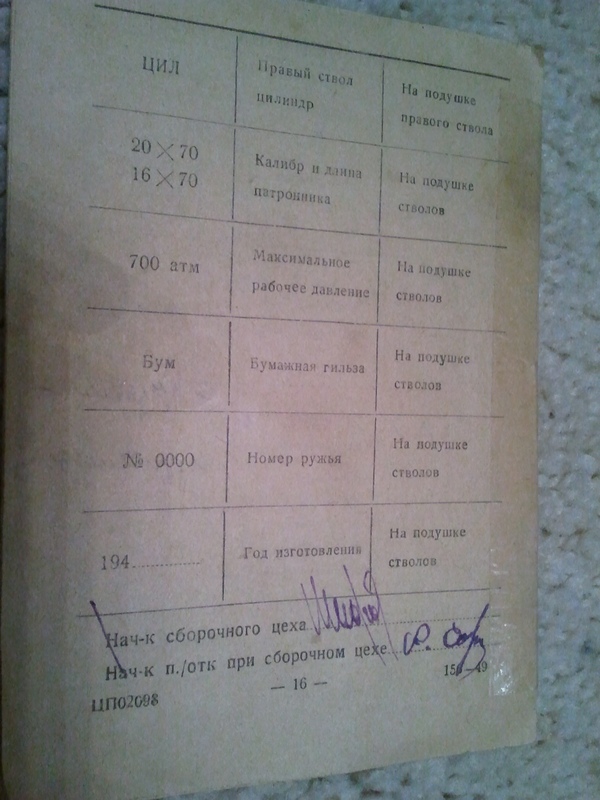 ЦИЛ
Правый ствол
цилиндр
На подушке
правого ствола
20×70
16×70
Калибр и длина
патронника
На подушке
стволов
700 атм
Максимальное
рабочее давление
На подушке
стволов
Бум
Бумажная гильза
На подушке
стволов
№ 0000
Номер ружья
На подушке
стволов
194..............
Год изготовления
На подушке
стволов
Нач-к сборочного цеха
Нач-к п./отк при сборочном цехе
ЦП02098
— 16 —